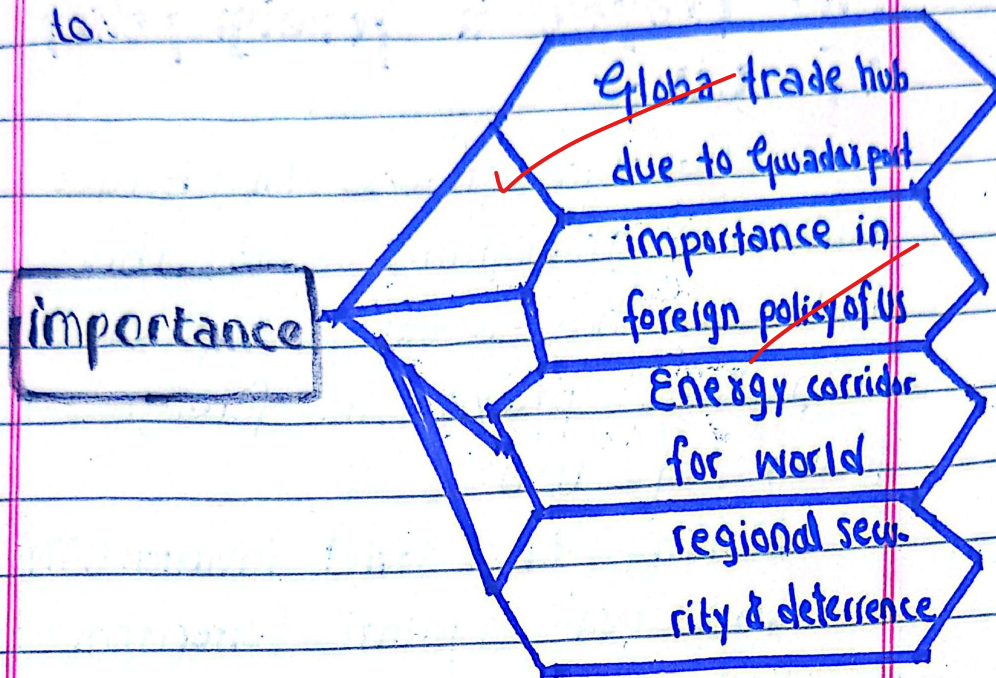 to:
Globa trade hub
due to Gwadar port
importance in
foreign policy of US
importance
Energy corridor
for world
regional secu-
rity & deterrence